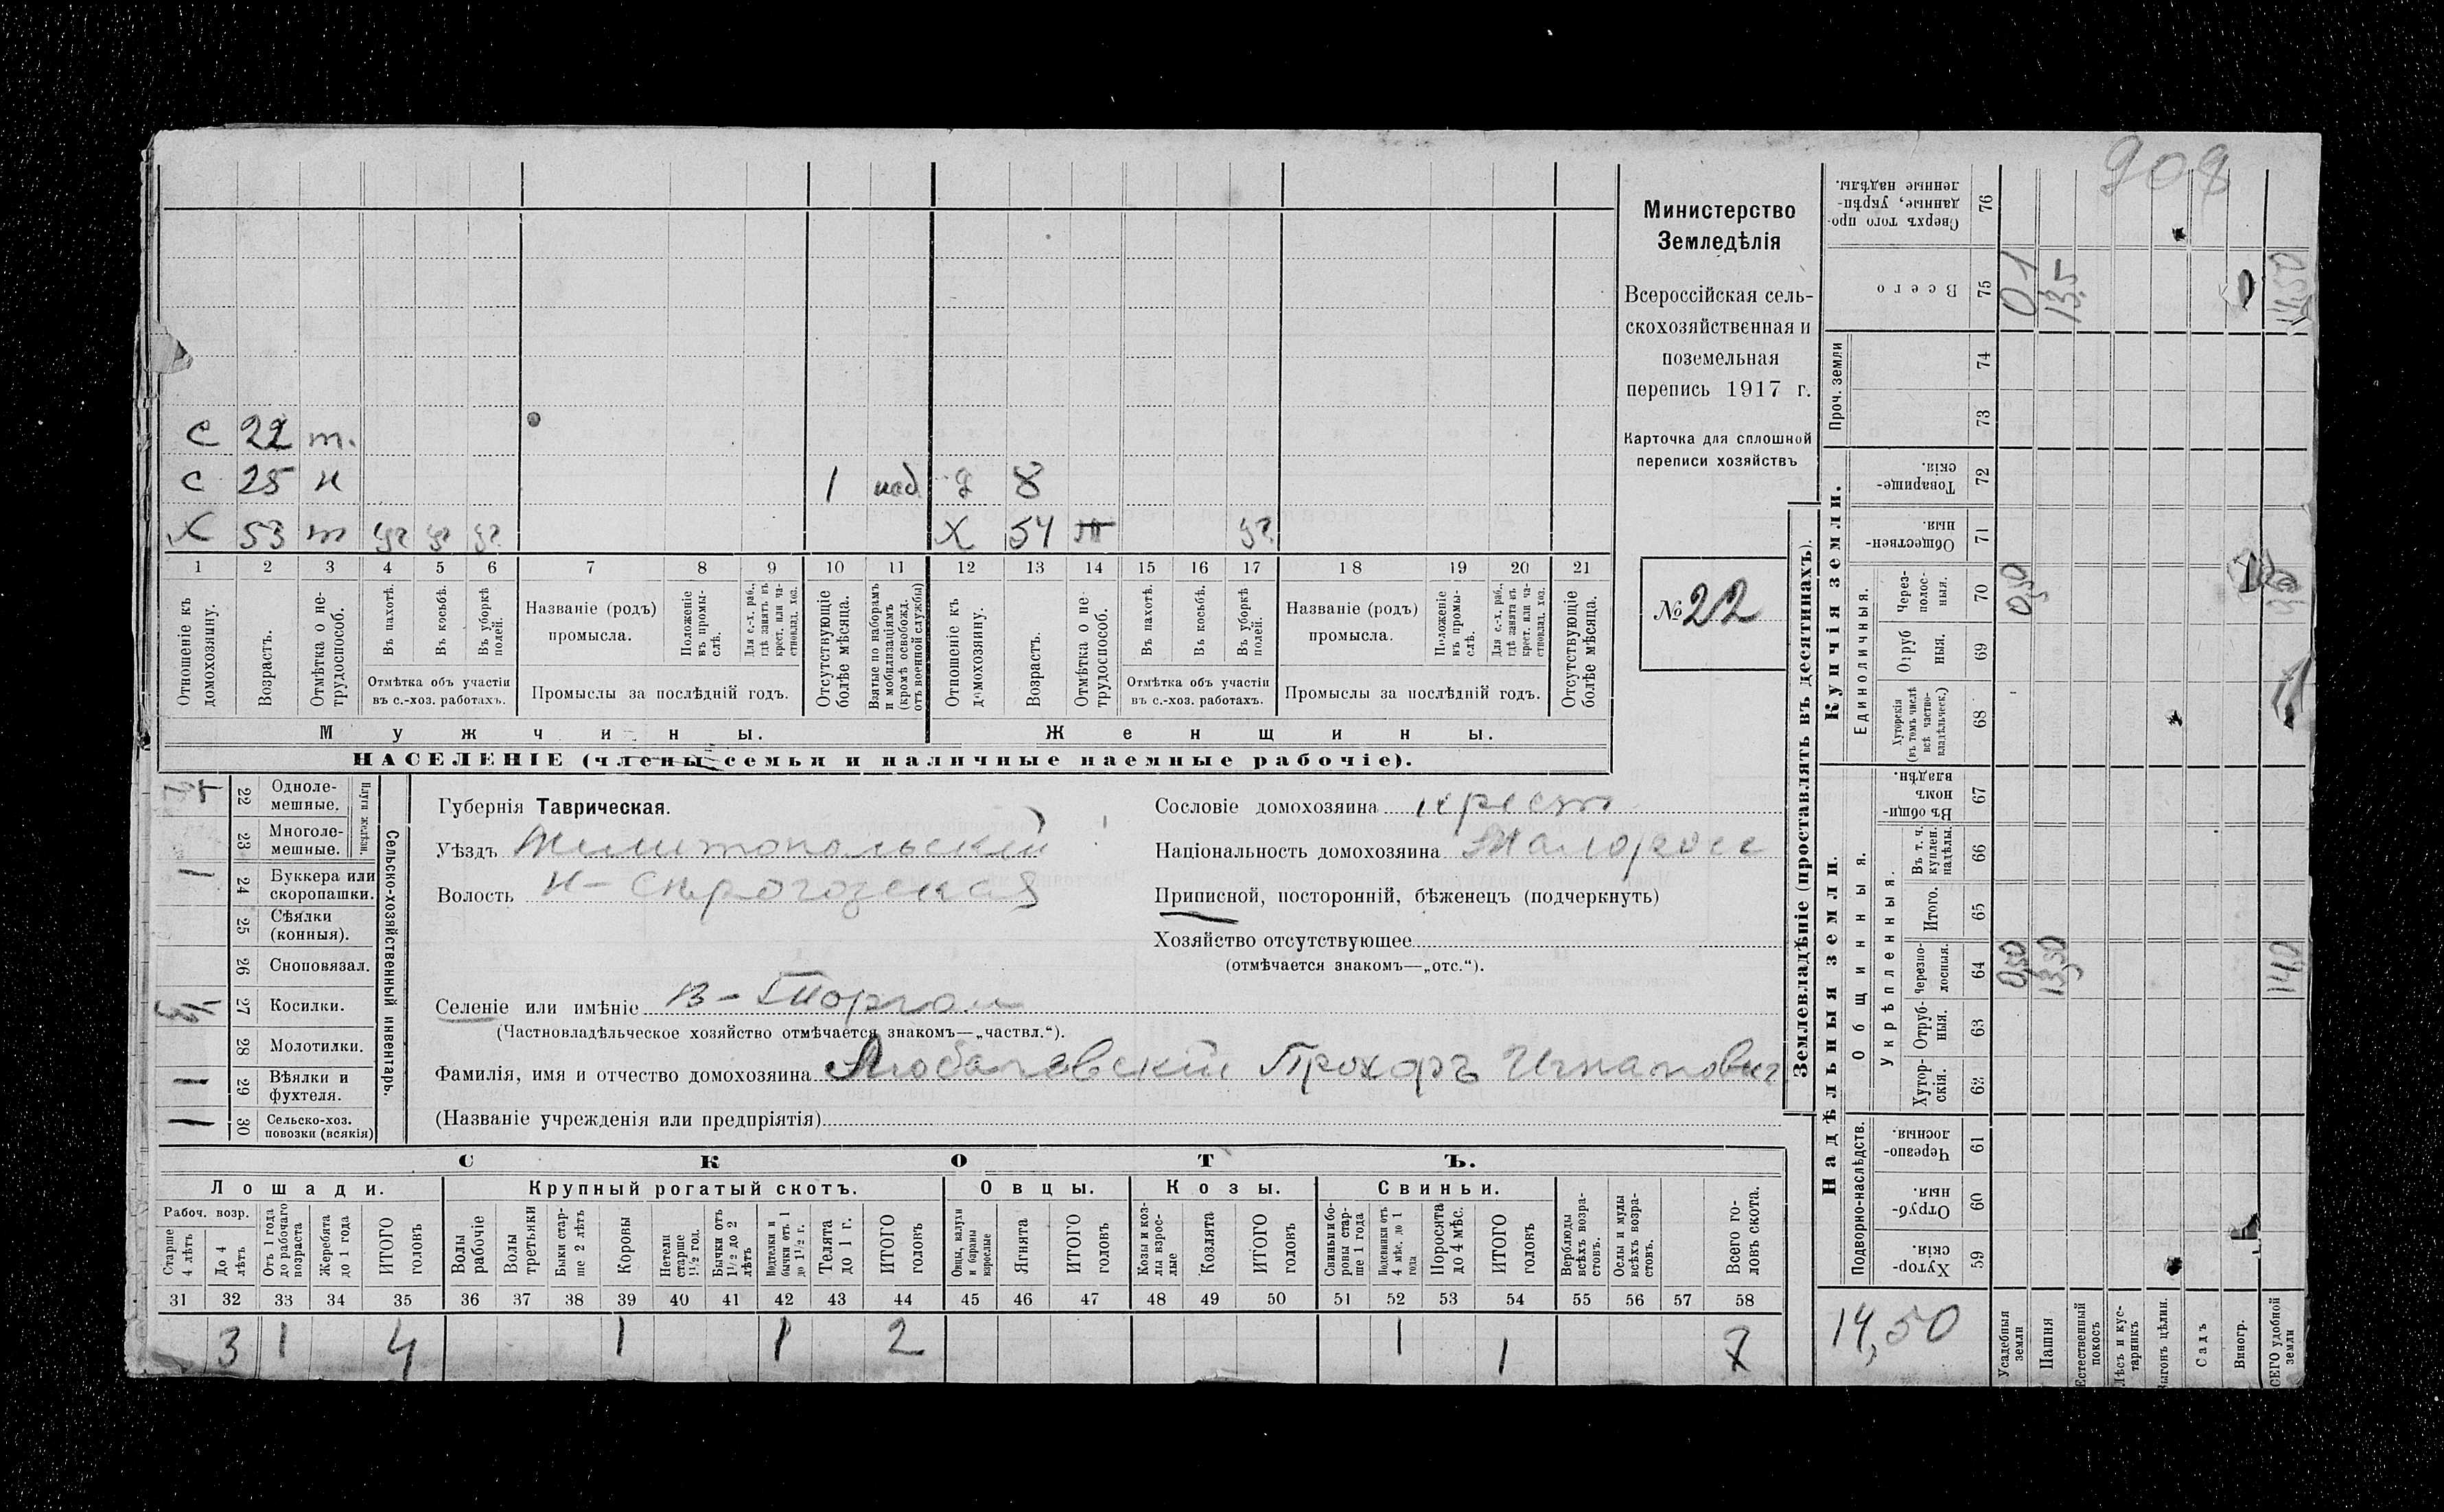 908
Министерство
Земледѣлія
Всероссійская сель-
скохозяйственная и
поземельная
перепись 1917 г.
Карточка для сплошной
переписи хозяйствъ
№ 22
с 22 т.
с 25 н 1 наб. д 8
х 53 т х 54
1 2 3 4 5 6 7 8 9 10 11 12 13 14 15 16 17 18 19 20 21
Отношеніе къ домохозяину.
Возрастъ.
Отмѣтка о не-трудоспособ.
Въ пахотѣ.
Въ косьбѣ.
Въ уборкѣ полей.
Отмѣтка объ участіи
въ с.-хоз. работахъ.
Названіе (родъ)
промысла.
Положеніе въ промы-слѣ.
Для с.-х. раб., гдѣ занятъ въ крест. или ча-стновлад. хоз.
Промыслы за послѣдній годъ.
Отсутствующіе болѣе мѣсяца.
Взятые по наборамъ и мобилизаціямъ (кромѣ освобожд. отъ военной службы)
Отношеніе къ домохозяину.
Возрастъ.
Отмѣтка о не-трудоспособ.
Въ пахотѣ.
Въ косьбѣ.
Въ уборкѣ полей.
Отмѣтка объ участіи
въ с.-хоз. работахъ.
Названіе (родъ)
промысла.
Положеніе въ промы-слѣ.
Для с.-х. раб., гдѣ занята въ крест. или ча-стновлад. хоз.
Промыслы за послѣдній годъ.
Отсутствующіе болѣе мѣсяца.
Мужчины. Женщины.
НАСЕЛЕНІЕ (члены семьи и наличные наемные рабочіе).
Сельско-хозяйственный инвентарь.
Плуги желѣзн.
22 Одноле-мешные.
23 Многоле-мешные.
1 24 Буккера или скоропашки.
25 Сѣялки (конныя).
26 Сноповязал.
27 Косилки.
28 Молотилки.
1 29 Вѣялки и фухтеля.
1 30 Сельско-хоз. повозки (всякія)
Губернія Таврическая.
Уѣздъ Мелитопольскій
Волость Н-Сѣрогозская
Селеніе или имѣніе В-Торгаи
(Частновладѣльческое хозяйство отмѣчается знакомъ—„частвл.“).
Фамилія, имя и отчество домохозяина Любачевскій Прохоръ Игнатович
(Названіе учрежденія или предпріятія)
Сословіе домохозяина крест
Національность домохозяина Малоросс
Приписной, посторонній, бѣженецъ (подчеркнуть)
Хозяйство отсутствующее
(отмѣчается знакомъ—„отс.“).
СКОТЪ.
Лошади. Крупный рогатый скотъ. Овцы. Козы. Свиньи.
Рабоч. возр.
Старше 4 лѣтъ
До 4 лѣтъ
Отъ 1 года до рабочаго возраста
Жеребята до 1 года
ИТОГО головъ
Волы рабочіе
Волы третьяки
Быки стар-ше 2 лѣтъ
Коровы
Нетели старше 1½ год.
Бычки отъ 1½ до 2 лѣтъ
Подтелки и бычки отъ 1 до 1½ г.
Телята до 1 г.
ИТОГО головъ
Овцы, валухи и бараны взрослые
Ягнята
ИТОГО головъ
Козы и коз-лы взрос-лые
Козлята
ИТОГО головъ
Свиньи и бо-ровы стар-ше 1 года
Подсвинки отъ 4 мѣс. до 1 года
Поросята до 4 мѣс.
ИТОГО головъ
Верблюды всѣхъ возра-стовъ.
Ослы и мулы всѣхъ возра-стовъ.
Всего го-ловъ скота.
31 32 33 34 35 36 37 38 39 40 41 42 43 44 45 46 47 48 49 50 51 52 53 54 55 56 57 58
3 1 4 1 1 2 1 1 7
Землевладѣніе (проставлять въ десятинахъ).
Купчія земли.
Надѣльныя земли.
Проч. земли
Единоличныя.
Общинныя.
Укрѣпленныя.
Подворно-наслѣдств.
76 Сверхъ того про-данные, укрѣп-ленные надѣлы.
75 Всего
74
73
72 Товарище-скія.
71 Обществен-ныя.
70 Через-полос-ныя.
69 Отруб ныя.
68 Хуторскія (въ томъ числѣ всѣ частно-владѣльческ.)
67 Въ общи-номъ владѣн.
66 Въ т. ч. куплен. надѣлы.
65 Итого.
64 Черезпо-лосныя.
63 Отруб-ныя.
62 Хутор-скія.
61 Черезпо-лосныя.
60 Отруб-ныя.
59 Хутор-скія.
0,50
0,50 13,50 14,0
14,50
Усадебныя земли
Пашня
Естественный покосъ
Лѣсъ и кус-тарникъ
Выгонъ цѣлин.
Садъ
Виногр.
ВСЕГО удобной земли